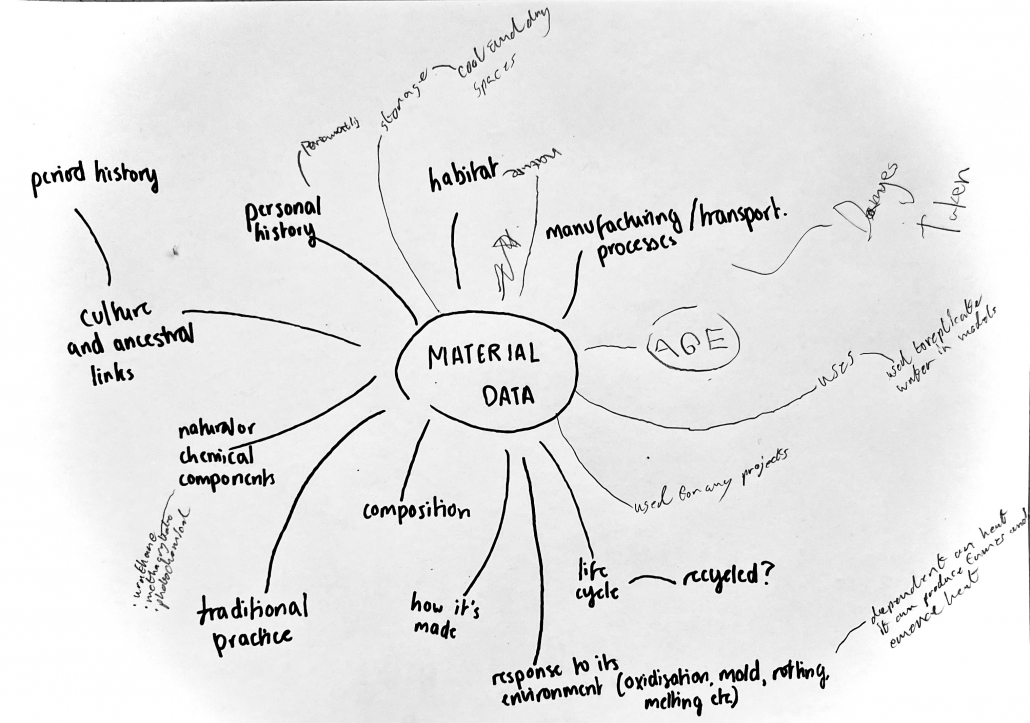 cool and dry
spaces
storage
habitat
period history
personal
history
manufacturing / transport.
processes
Damages
Taken
culture
and ancestral
links
MATERIAL
DATA
AGE
uses
used to replicate
water in models
natural or
chemical
components
composition
used for any projects
traditional
practice
how it's
made
life
cycle
recycled?
response to its
environment (oxidisation, mold, rotting,
melting etc)
dependent on heat
it can produce fumes and
heat